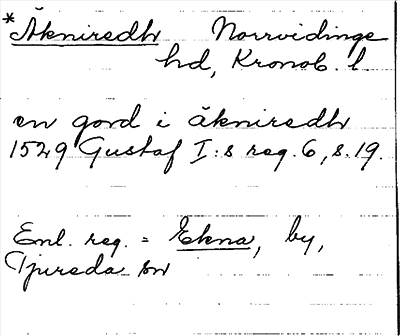 *Åkniredh Norrvidinge
hd, Kronob. l.
en gord i åkniredh
1529 Gustaf I:s reg. 6, s. 19.
Enl. reg. = Ekna, by,
Tjureda sn